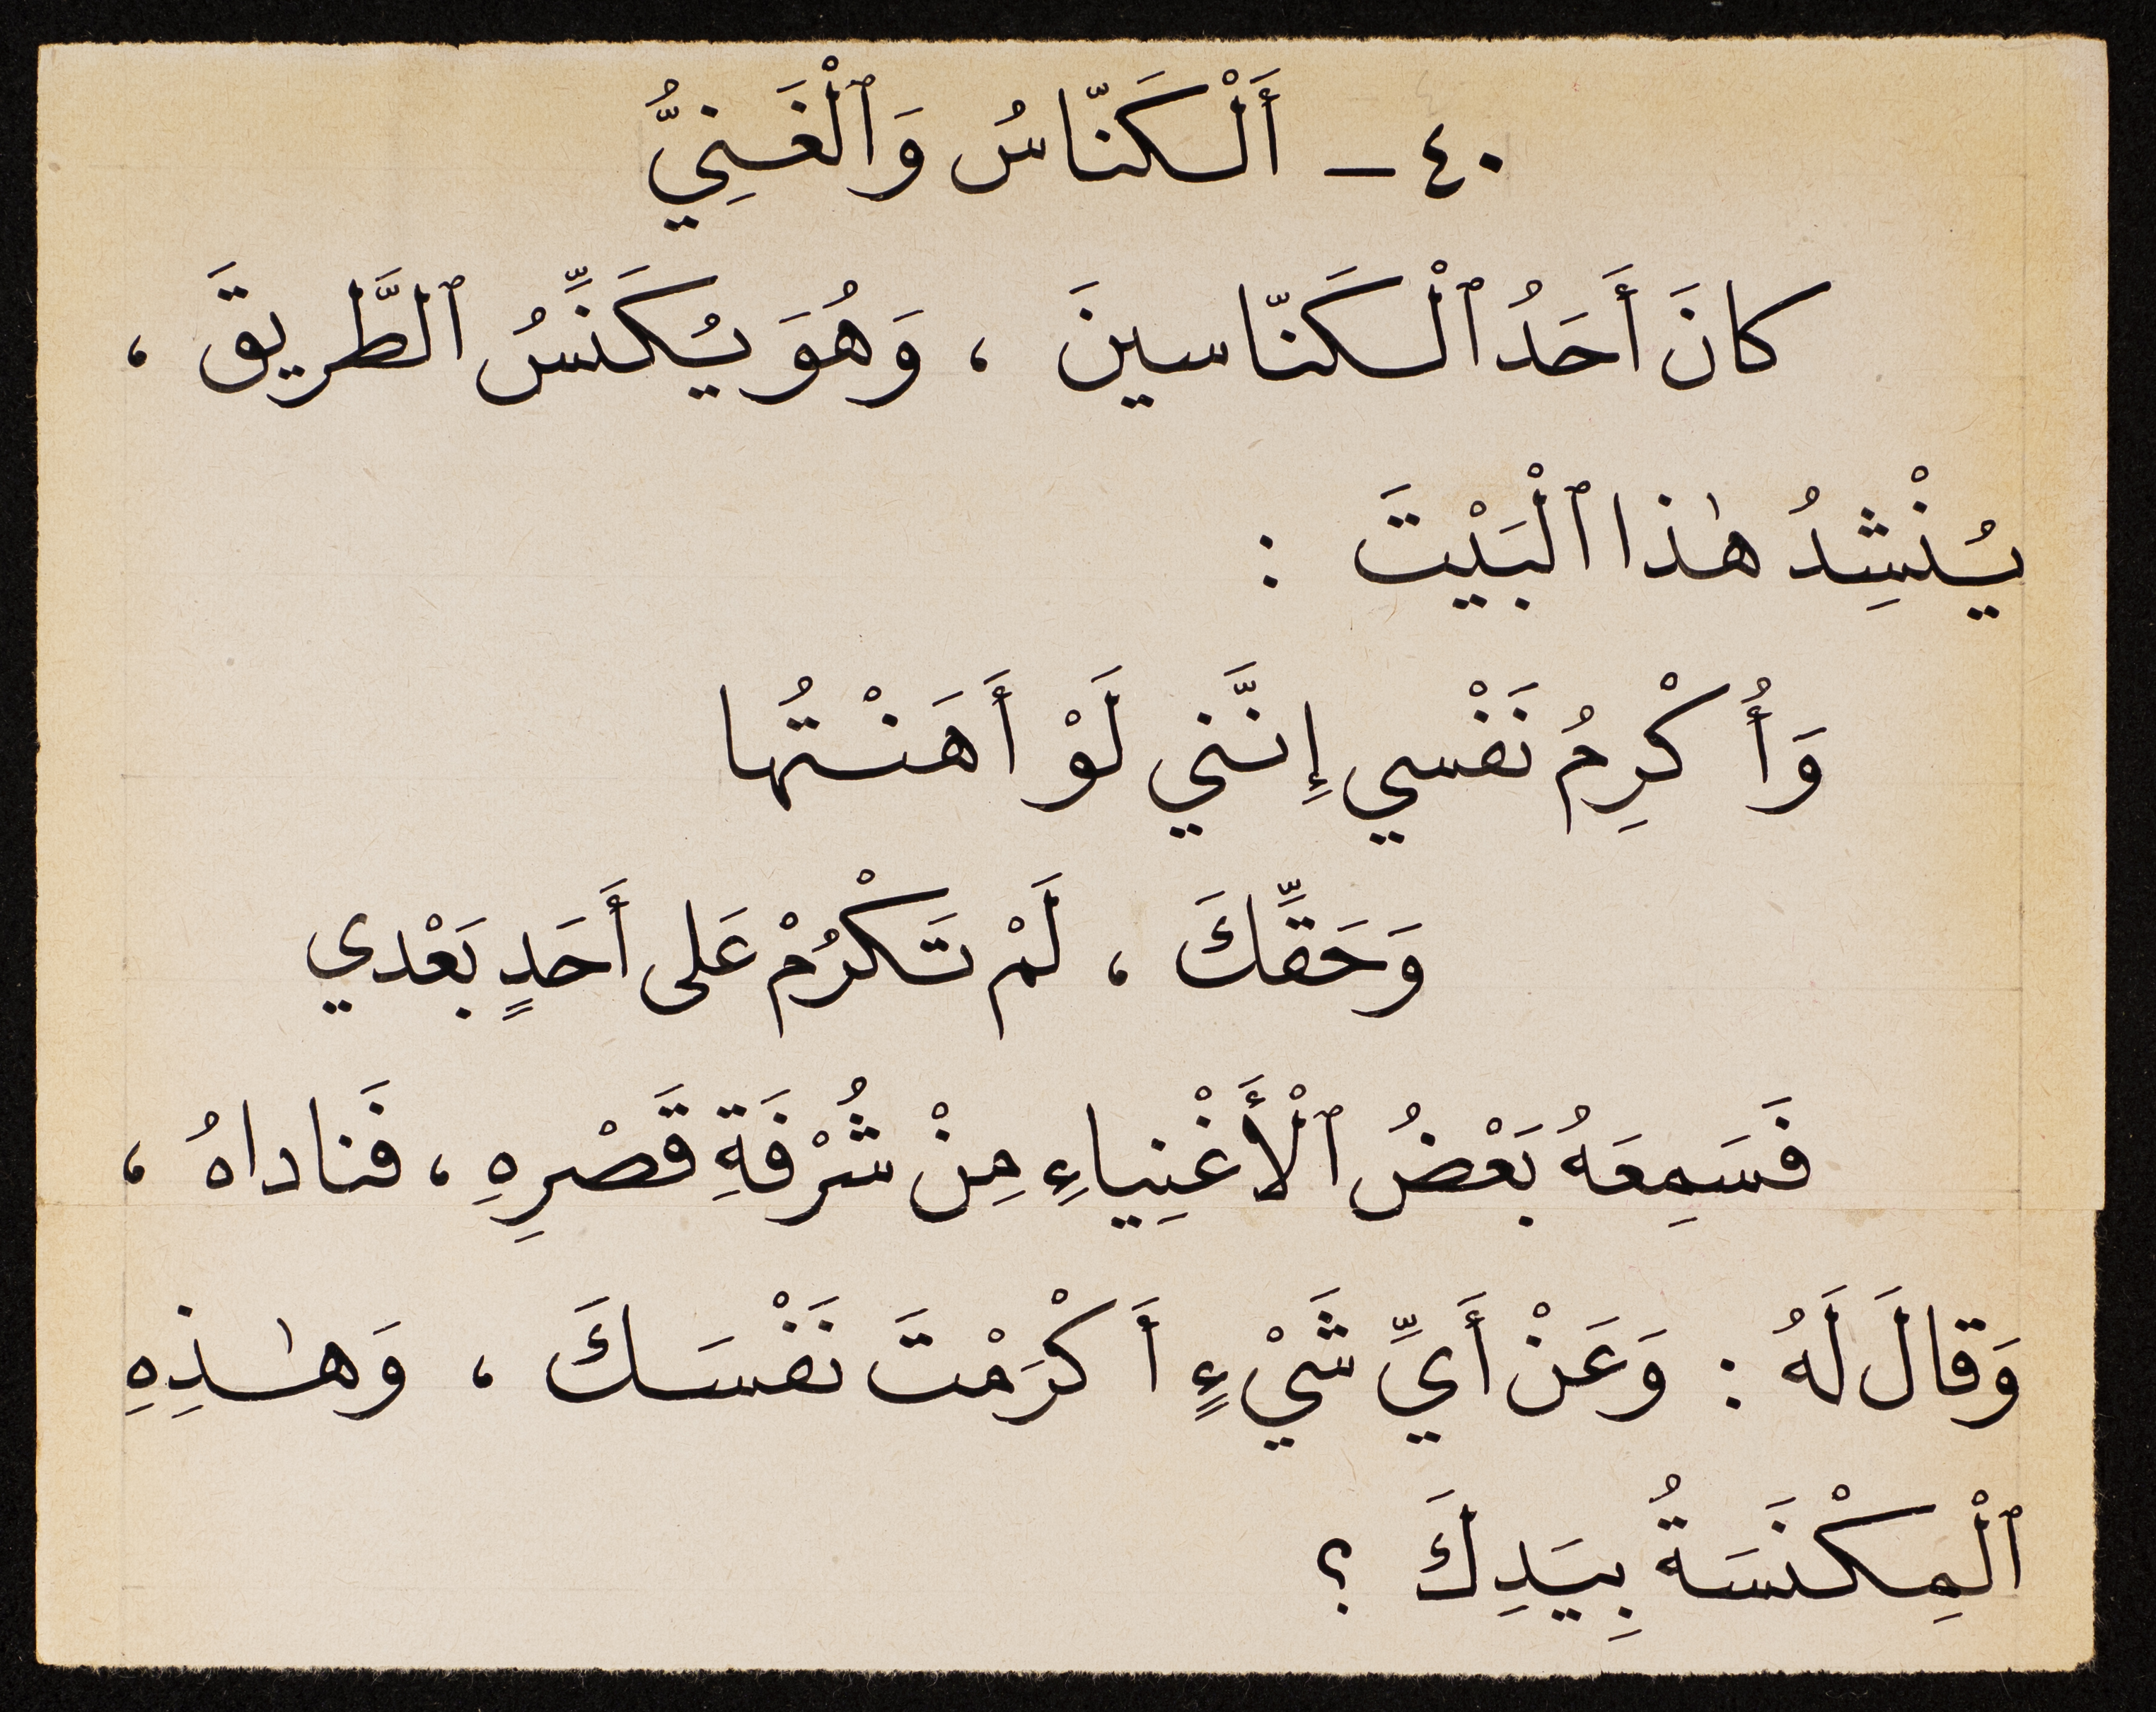 ٤٠ ـ أَلْكَنّاسُ وَٱلْغَنِيُّ
كانَ أَحَدُ ٱلْكَنّاسينَ ، وَهُوَ يُكَنِّسُ ٱلطَّريقَ ،
يُنْشِدُ هٰذا ٱلْبَيْتَ :
وَأُكْرِمُ نَفْسي إِنَّني لَوْ أَهَنْتُها
وَحَقِّكَ ، لَمْ تَكْرُمْ عَلى أَحَدٍ بَعْدي
فَسَمِعَهُ بَعْضُ ٱلْأَغْنِياءِ مِنْ شُرْفَةِ قَصْرِهِ ، فَناداهُ ،
وَقالَ لَهُ : وَعَنْ أَيِّ شَيْءٍ أَكْرَمْتَ نَفْسَكَ ، وَهٰذِهِ
ٱلْمِكْنَسَةُ بِيَدِكَ ؟